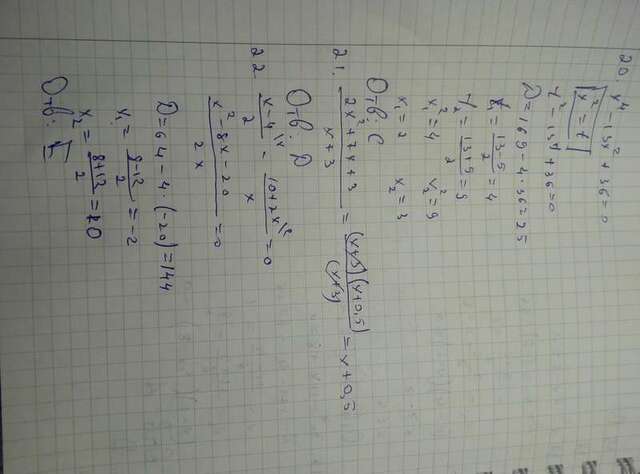 20. x⁴ - 13x² + 36 = 0
[x² = t]
t² - 13t + 36 = 0
D = 169 - 4·36 = 25
t₁ = (13-5)/2 = 4
t₂ = (13+5)/2 = 9
x₁² = 4 x₂² = 9
x₁ = 2 x₂ = 3
Отв: C
21. (2x² + 7x + 3)/(x+3) = (x+3)(x+0,5)/(x+3) = x + 0,5
Отв: D
22. (x-4)/2 \x = (10+2x)/x \2 = 0
(x² - 8x - 20)/(2x) = 0
D = 64 - 4·(-20) = 144
x₁ = (8-12)/2 = -2
x₂ = (8+12)/2 = 10
Отв: E